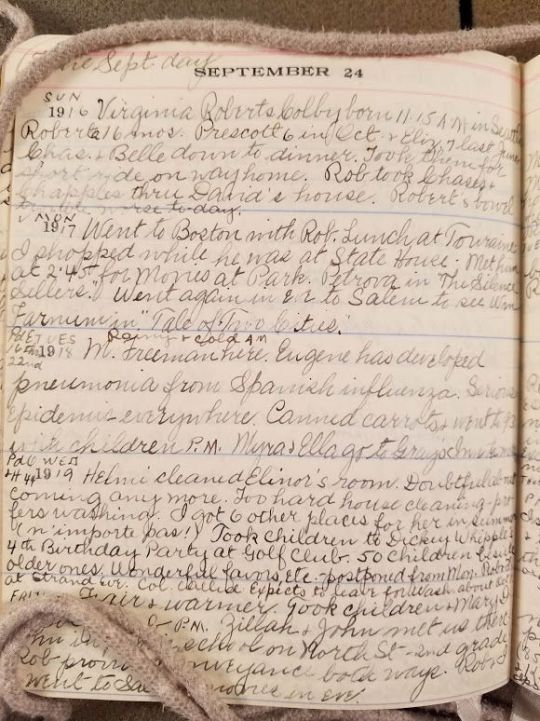 The Sept. day
SEPTEMBER 24
SUN
1916 Virginia Roberts Colby born 11.15 A.M. in
Roberta 16 mos. Prescott 6 in Oct. & Eliz. 7 last June
Chas. & Belle down to dinner. Took them for
short ride on way home. Rob took Chases &
Chapples thru David's house. Robert's bowel
worse to-day.
MON
1917 Went to Boston with Rob. Lunch at Touraine
I shopped while he was at State House. Met him
at 2.45 for Movies at Park. Petrova in "The Silence
Sellers." Went again in Ev. to Salem to see Wm
Farnum in "Tale of Two Cities."
TUES Rainy & cold A.M.
1918 M. Freeman here. Eugene has developed
pneumonia from Spanish influenza. Serious
Epidemic everywhere. Canned carrots & went to
with children P.M. Myra & Ella go to Grays Inn
Pd. WED
1919 Helmi cleaned Elinor's room. Doubtful
coming any more. Too hard house cleaning. pre
fers washing. I got 6 other places for her in summer
(n'importe pas!) Took children to Dickey Whipple's
4th Birthday Party at Golf Club. 50 children besides
older ones. Wonderful favors, etc. postponed from Mon.
at Strand ev. Col. called Expects to leave for Wash. about
FRI
Fair & warmer. Took children & Mary D.
P.M. Zillah & John met us there
school on North St - 2nd grade
Rob conveyance both ways. Rob & I
went to movies in eve.